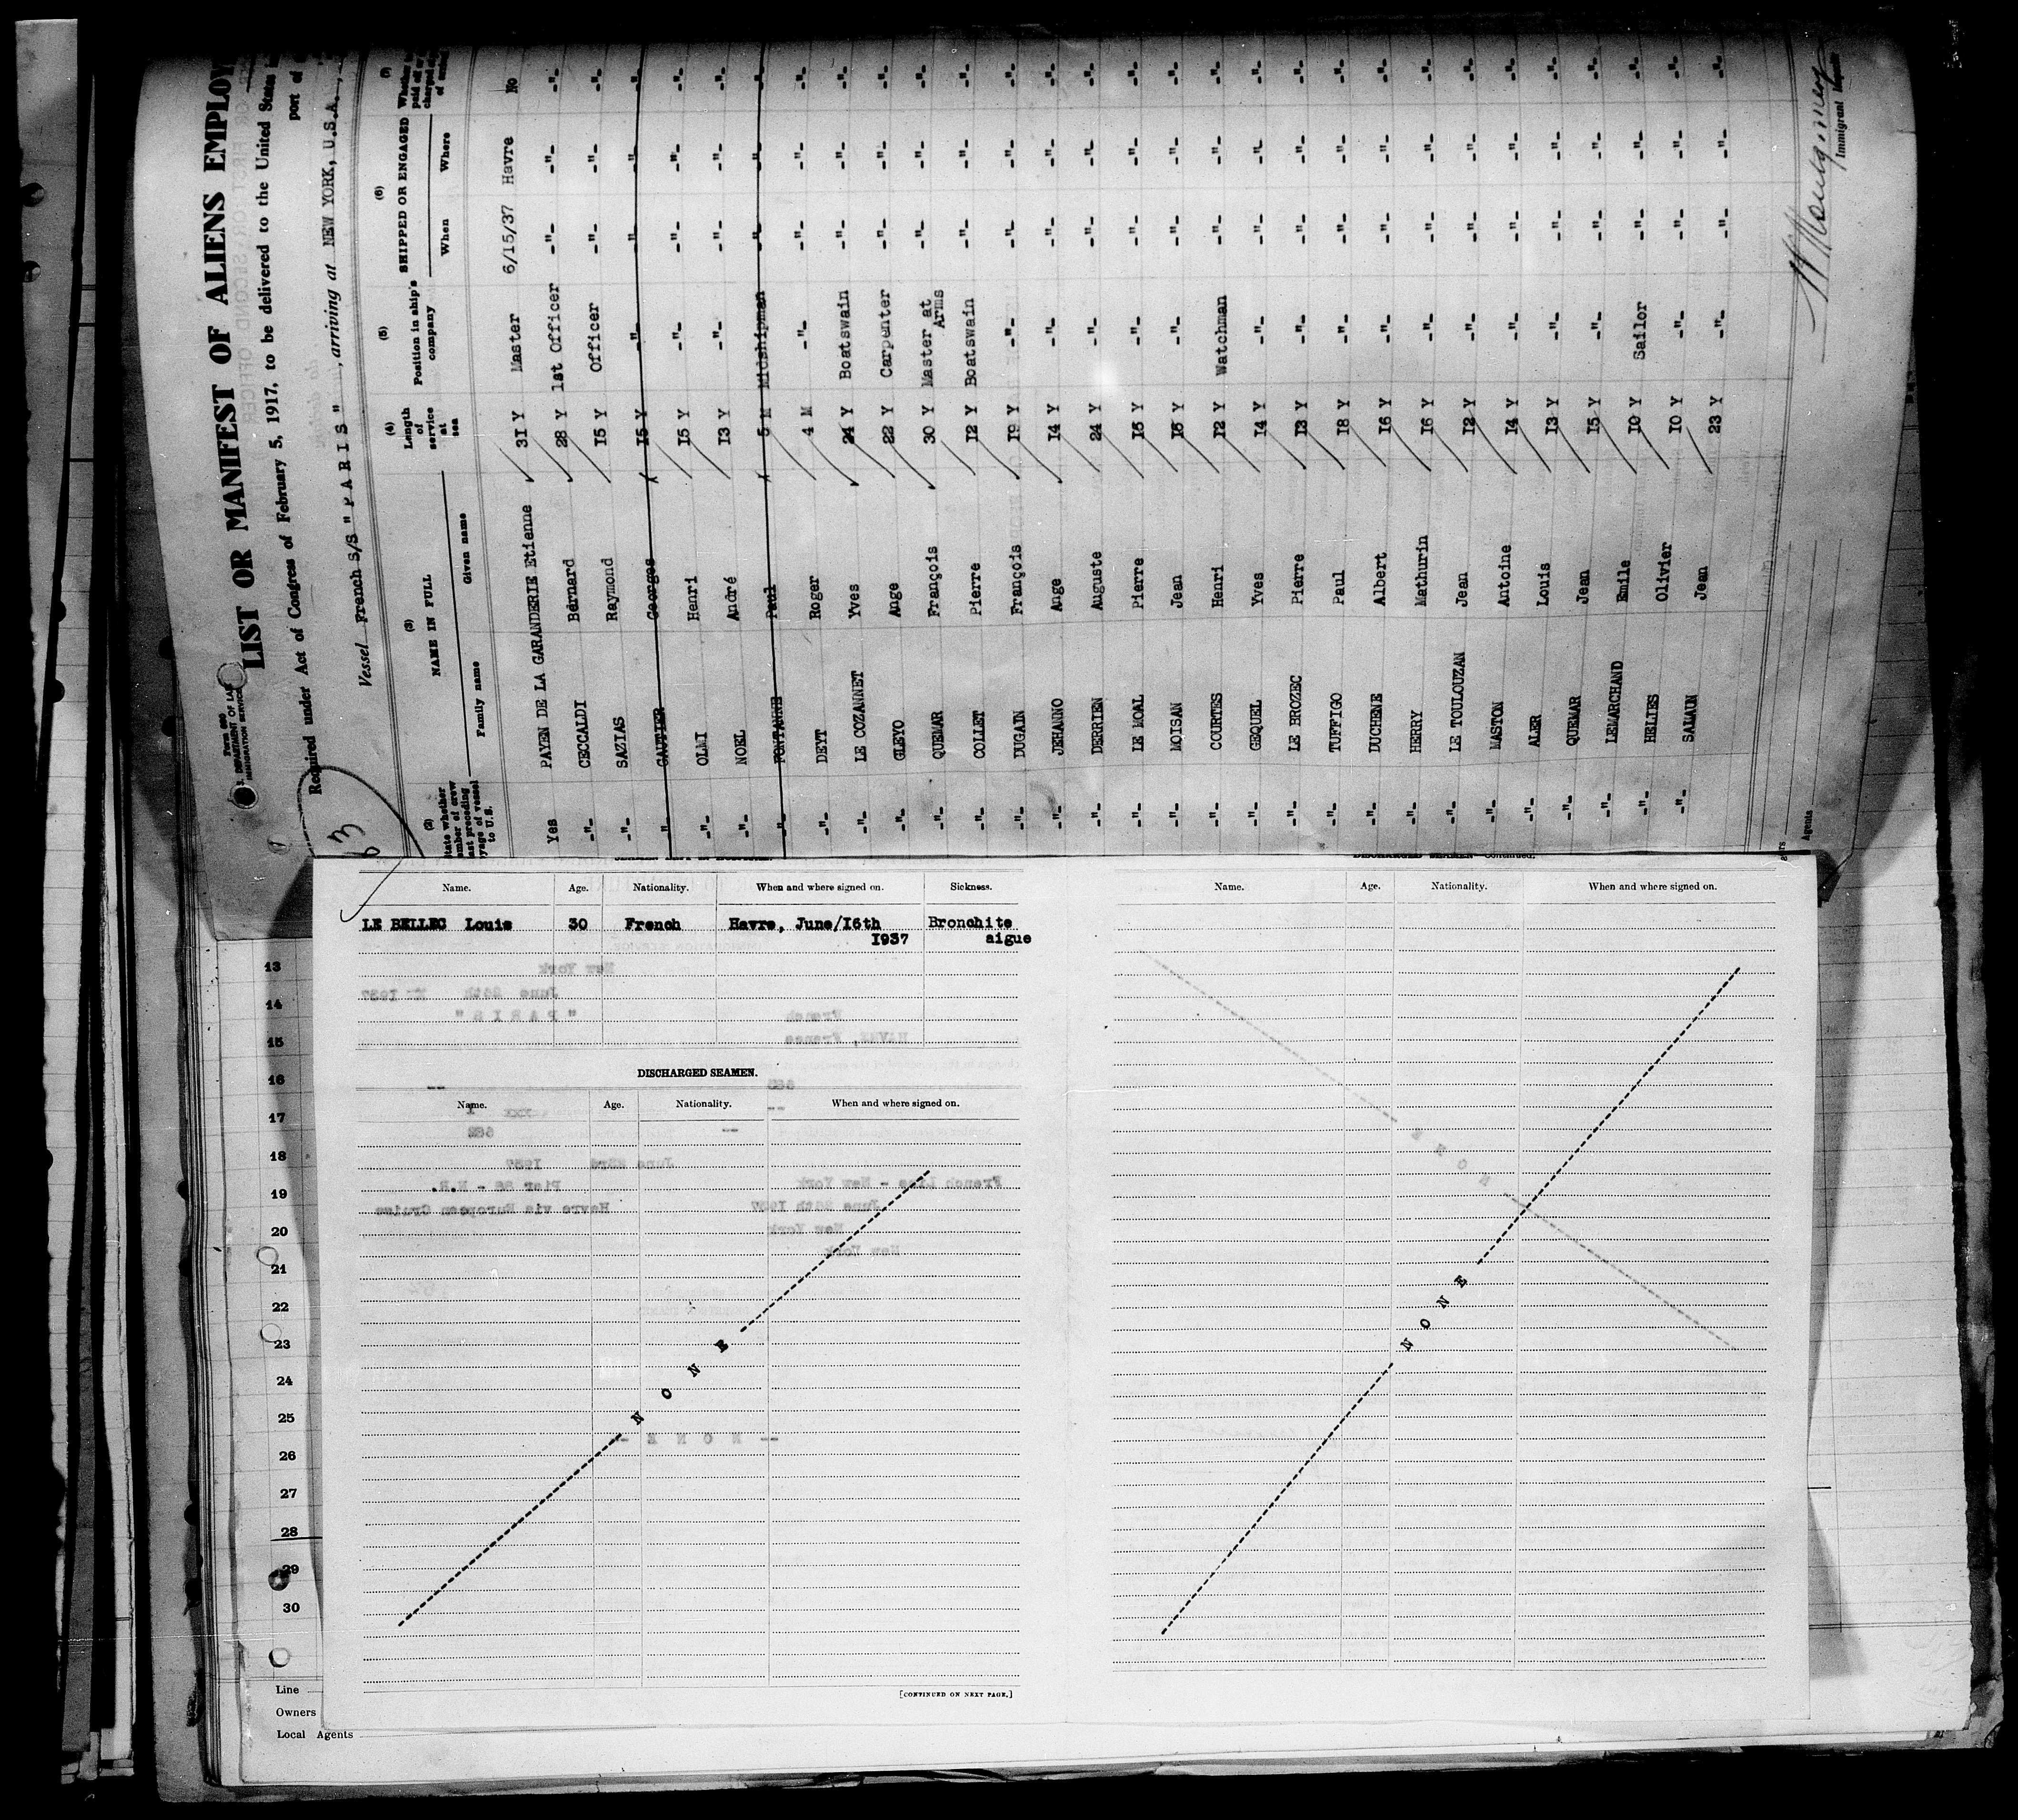 Form 689
U. S. DEPARTMENT OF LAB
IMMIGRATION SERVICE
LIST OR MANIFEST OF ALIENS EMPLOY
Required under Act of Congress of February 5, 1917, to be delivered to the United States
port of
Vessel French S/S " P A R I S ", arriving at NEW YORK, U.S.A.
(2) (3) (4) (5) (6) (7)
NAME IN FULL Length of service at sea Position in ship's company SHIPPED OR ENGAGED
Family name Given name When Where
Yes PAYEN DE LA GARANDERIE Etienne 31 Y Master 6/15/37 Havre No
-"- CECCALDI Bérnard 28 Y 1st Officer -"- -"- -"-
-"- SAZIAS Raymond 15 Y Officer -"- -"- -"-
-"- GAUTIER Georges 15 Y -"- -"- -"- -"-
-"- OLMI Henri 15 Y -"- -"- -"- -"-
-"- NOEL André 13 Y -"- -"- -"- -"-
-"- FONTANNE Paul 5 M Midshipman -"- -"- -"-
-"- DEYT Roger 4 M -"- -"- -"- -"-
-"- LE COZANNET Yves 24 Y Boatswain -"- -"- -"-
-"- GLEYO Ange 22 Y Carpenter -"- -"- -"-
-"- QUEMAR François 30 Y Master at Arms -"- -"- -"-
-"- COLLET Pierre 12 Y Boatswain -"- -"- -"-
-"- DUGAIN François 19 Y -"- -"- -"- -"-
-"- JEHANNO Ange 14 Y -"- -"- -"- -"-
-"- DERRIEN Auguste 24 Y -"- -"- -"- -"-
-"- LE MOAL Pierre -"- -"- -"- -"-
-"- MOISAN Jean -"- -"- -"- -"-
-"- COURTES Henri 12 Y Watchman -"- -"- -"-
-"- GEQUEL Yves 14 Y -"- -"- -"- -"-
-"- LE BROZEC Pierre 13 Y -"- -"- -"- -"-
-"- TUFFIGO Paul 18 Y -"- -"- -"- -"-
-"- DUCHENE Albert 16 Y -"- -"- -"- -"-
-"- HERRY Mathurin 16 Y -"- -"- -"- -"-
-"- LE TOULOUZAN Jean 12 Y -"- -"- -"- -"-
-"- MASTON Antoine 14 Y -"- -"- -"- -"-
-"- ALER Louis 13 Y -"- -"- -"- -"-
-"- QUEMAR Jean 15 Y -"- -"- -"- -"-
-"- LEMARCHAND Emile 10 Y Sailor -"- -"- -"-
-"- HELIES Olivier 10 Y -"- -"- -"- -"-
-"- SALAUN Jean 23 Y -"- -"- -"- -"-
Immigrant
Agents
Name. Age. Nationality. When and where signed on. Sickness.
LE BELLEC Louis 30 French Havre, June/16th Bronchite
1937 aigue
DISCHARGED SEAMEN.
Name. Age. Nationality. When and where signed on.
N O N E
[CONTINUED ON NEXT PAGE.]
DISCHARGED SEAMEN—Continued.
Name. Age. Nationality. When and where signed on.
N O N E
13
14
15
16
17
18
19
20
21
22
23
24
25
26
27
28
29
30
Line
Owners
Local Agents